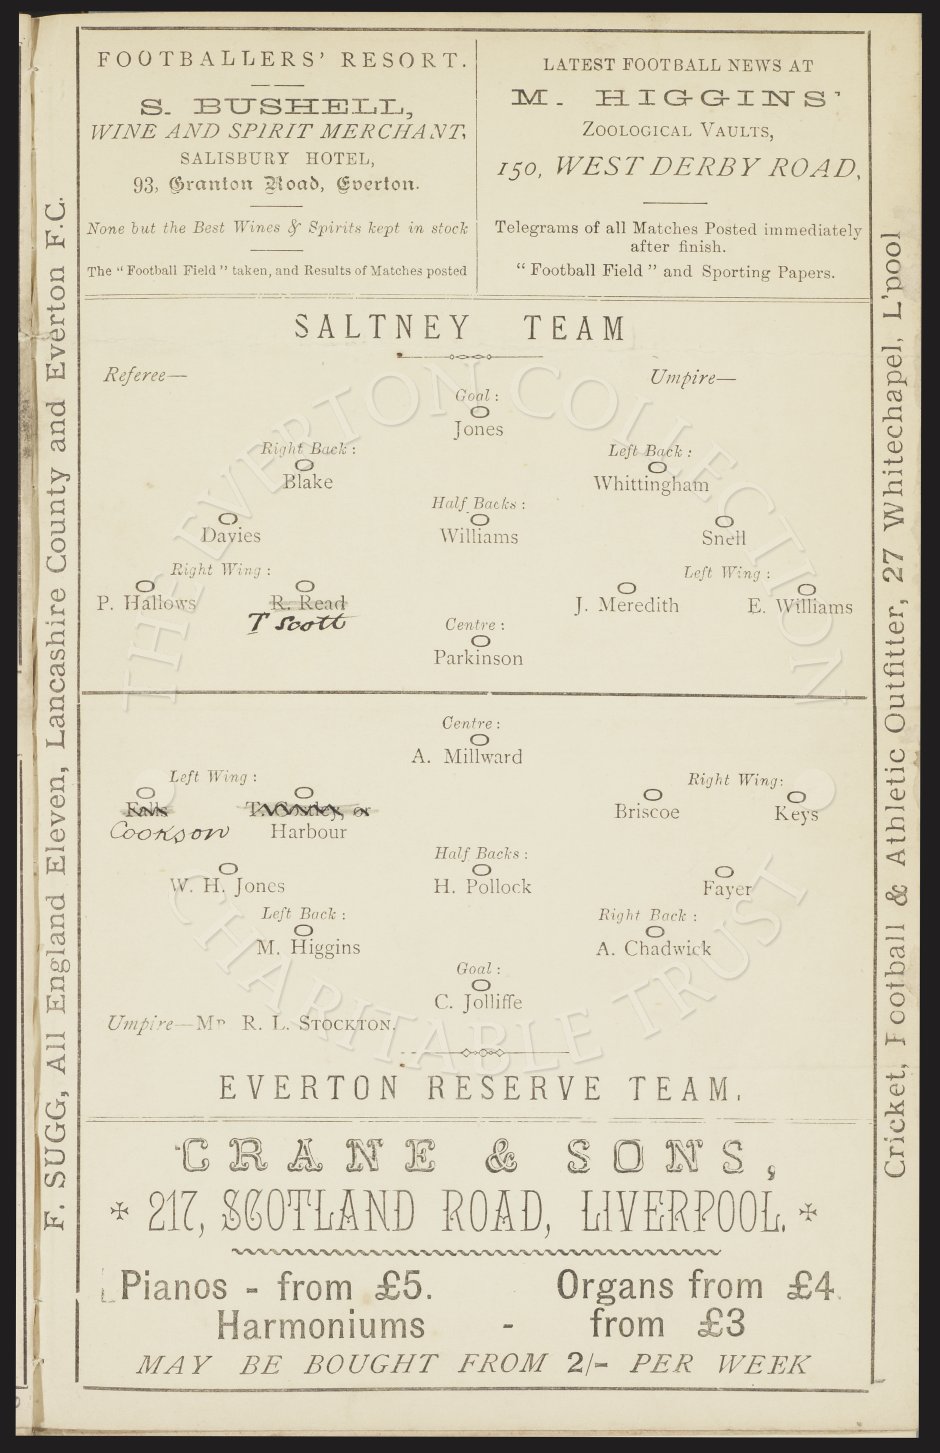 FOOTBALLERS' RESORT.
S. BUSHELL,
WINE AND SPIRIT MERCHANT,
SALISBURY HOTEL,
93, Granton Road, Everton.
None but the Best Wines & Spirits kept in stock
The "Football Field" taken, and Results of Matches posted
LATEST FOOTBALL NEWS AT
M. HIGGINS'
ZOOLOGICAL VAULTS,
150, WEST DERBY ROAD,
Telegrams of all Matches Posted immediately
after finish.
"Football Field" and Sporting Papers.
F. SUGG, All England Eleven, Lancashire County and Everton F.C.
SALTNEY TEAM
Referee—
Umpire—
Goal:
Jones
Right Back:
Left Back:
Blake
Whittingham
Half Backs:
Davies
Williams
Snell
Right Wing:
Left Wing:
P. Hallows
R. Read
J. Meredith
E. Williams
T Scott
Centre:
Parkinson
Centre:
A. Millward
Left Wing:
Right Wing:
Falls
or
Briscoe
Keys
Cookson
Harbour
Half Backs:
W. H. Jones
H. Pollock
Fayer
Left Back:
Right Back:
M. Higgins
A. Chadwick
Goal:
C. Jolliffe
Umpire—Mr R. L. STOCKTON.
EVERTON RESERVE TEAM.
CRANE & SONS,
217, SCOTLAND ROAD, LIVERPOOL.
Pianos - from £5. Organs from £4.
Harmoniums - from £3
MAY BE BOUGHT FROM 2/- PER WEEK
Cricket, Football & Athletic Outfitter, 27 Whitechapel, L'pool
THE EVERTON COLLECTION
CHARITABLE TRUST